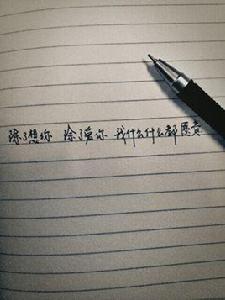 除了想你 除了爱你 我什么什么都愿意